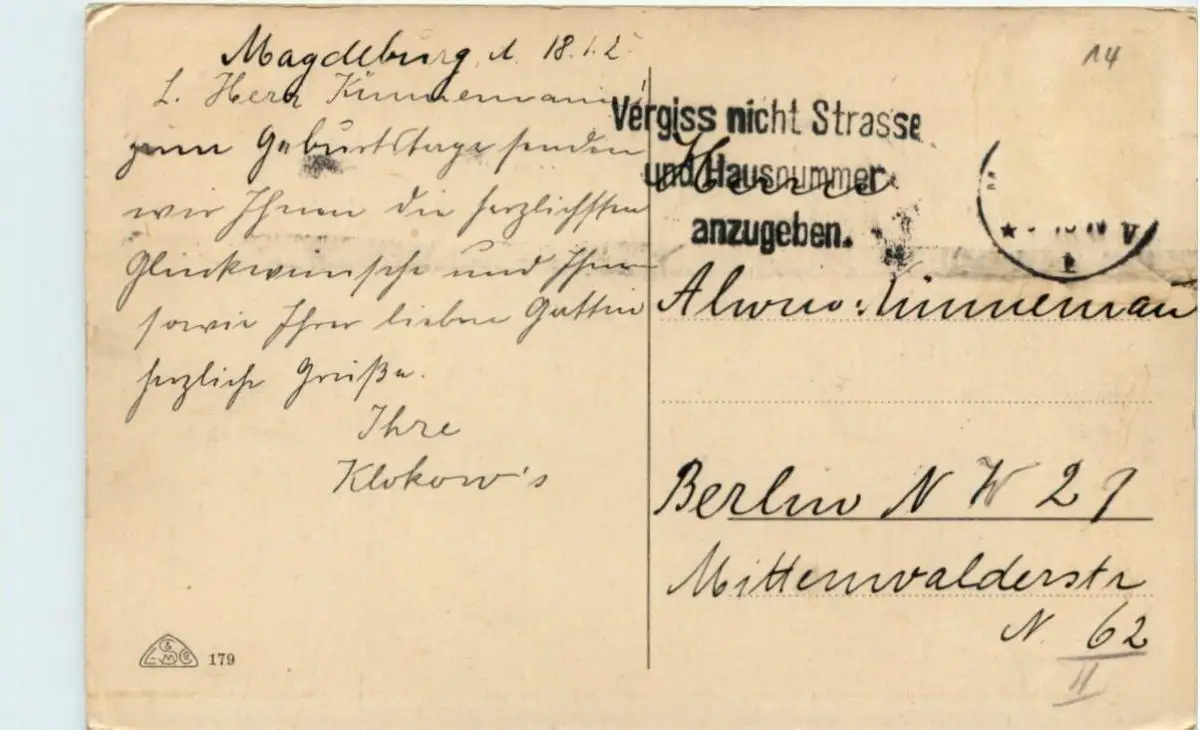 Magdeburg, d. 18.1.2
L. Herr Künnemann!
zum Geburtstage senden
wir Ihnen die herzlichsten
Glückwünsche und Ihnen
sowie Ihrer lieben Gattin
herzliche Grüße.
Ihre
Klokow's
179
14
Vergiss nicht Strasse
und Hausnummer
anzugeben.
Herrn
Künneman
Berlin N W 29
Mittenwalderstr
N. 62
II